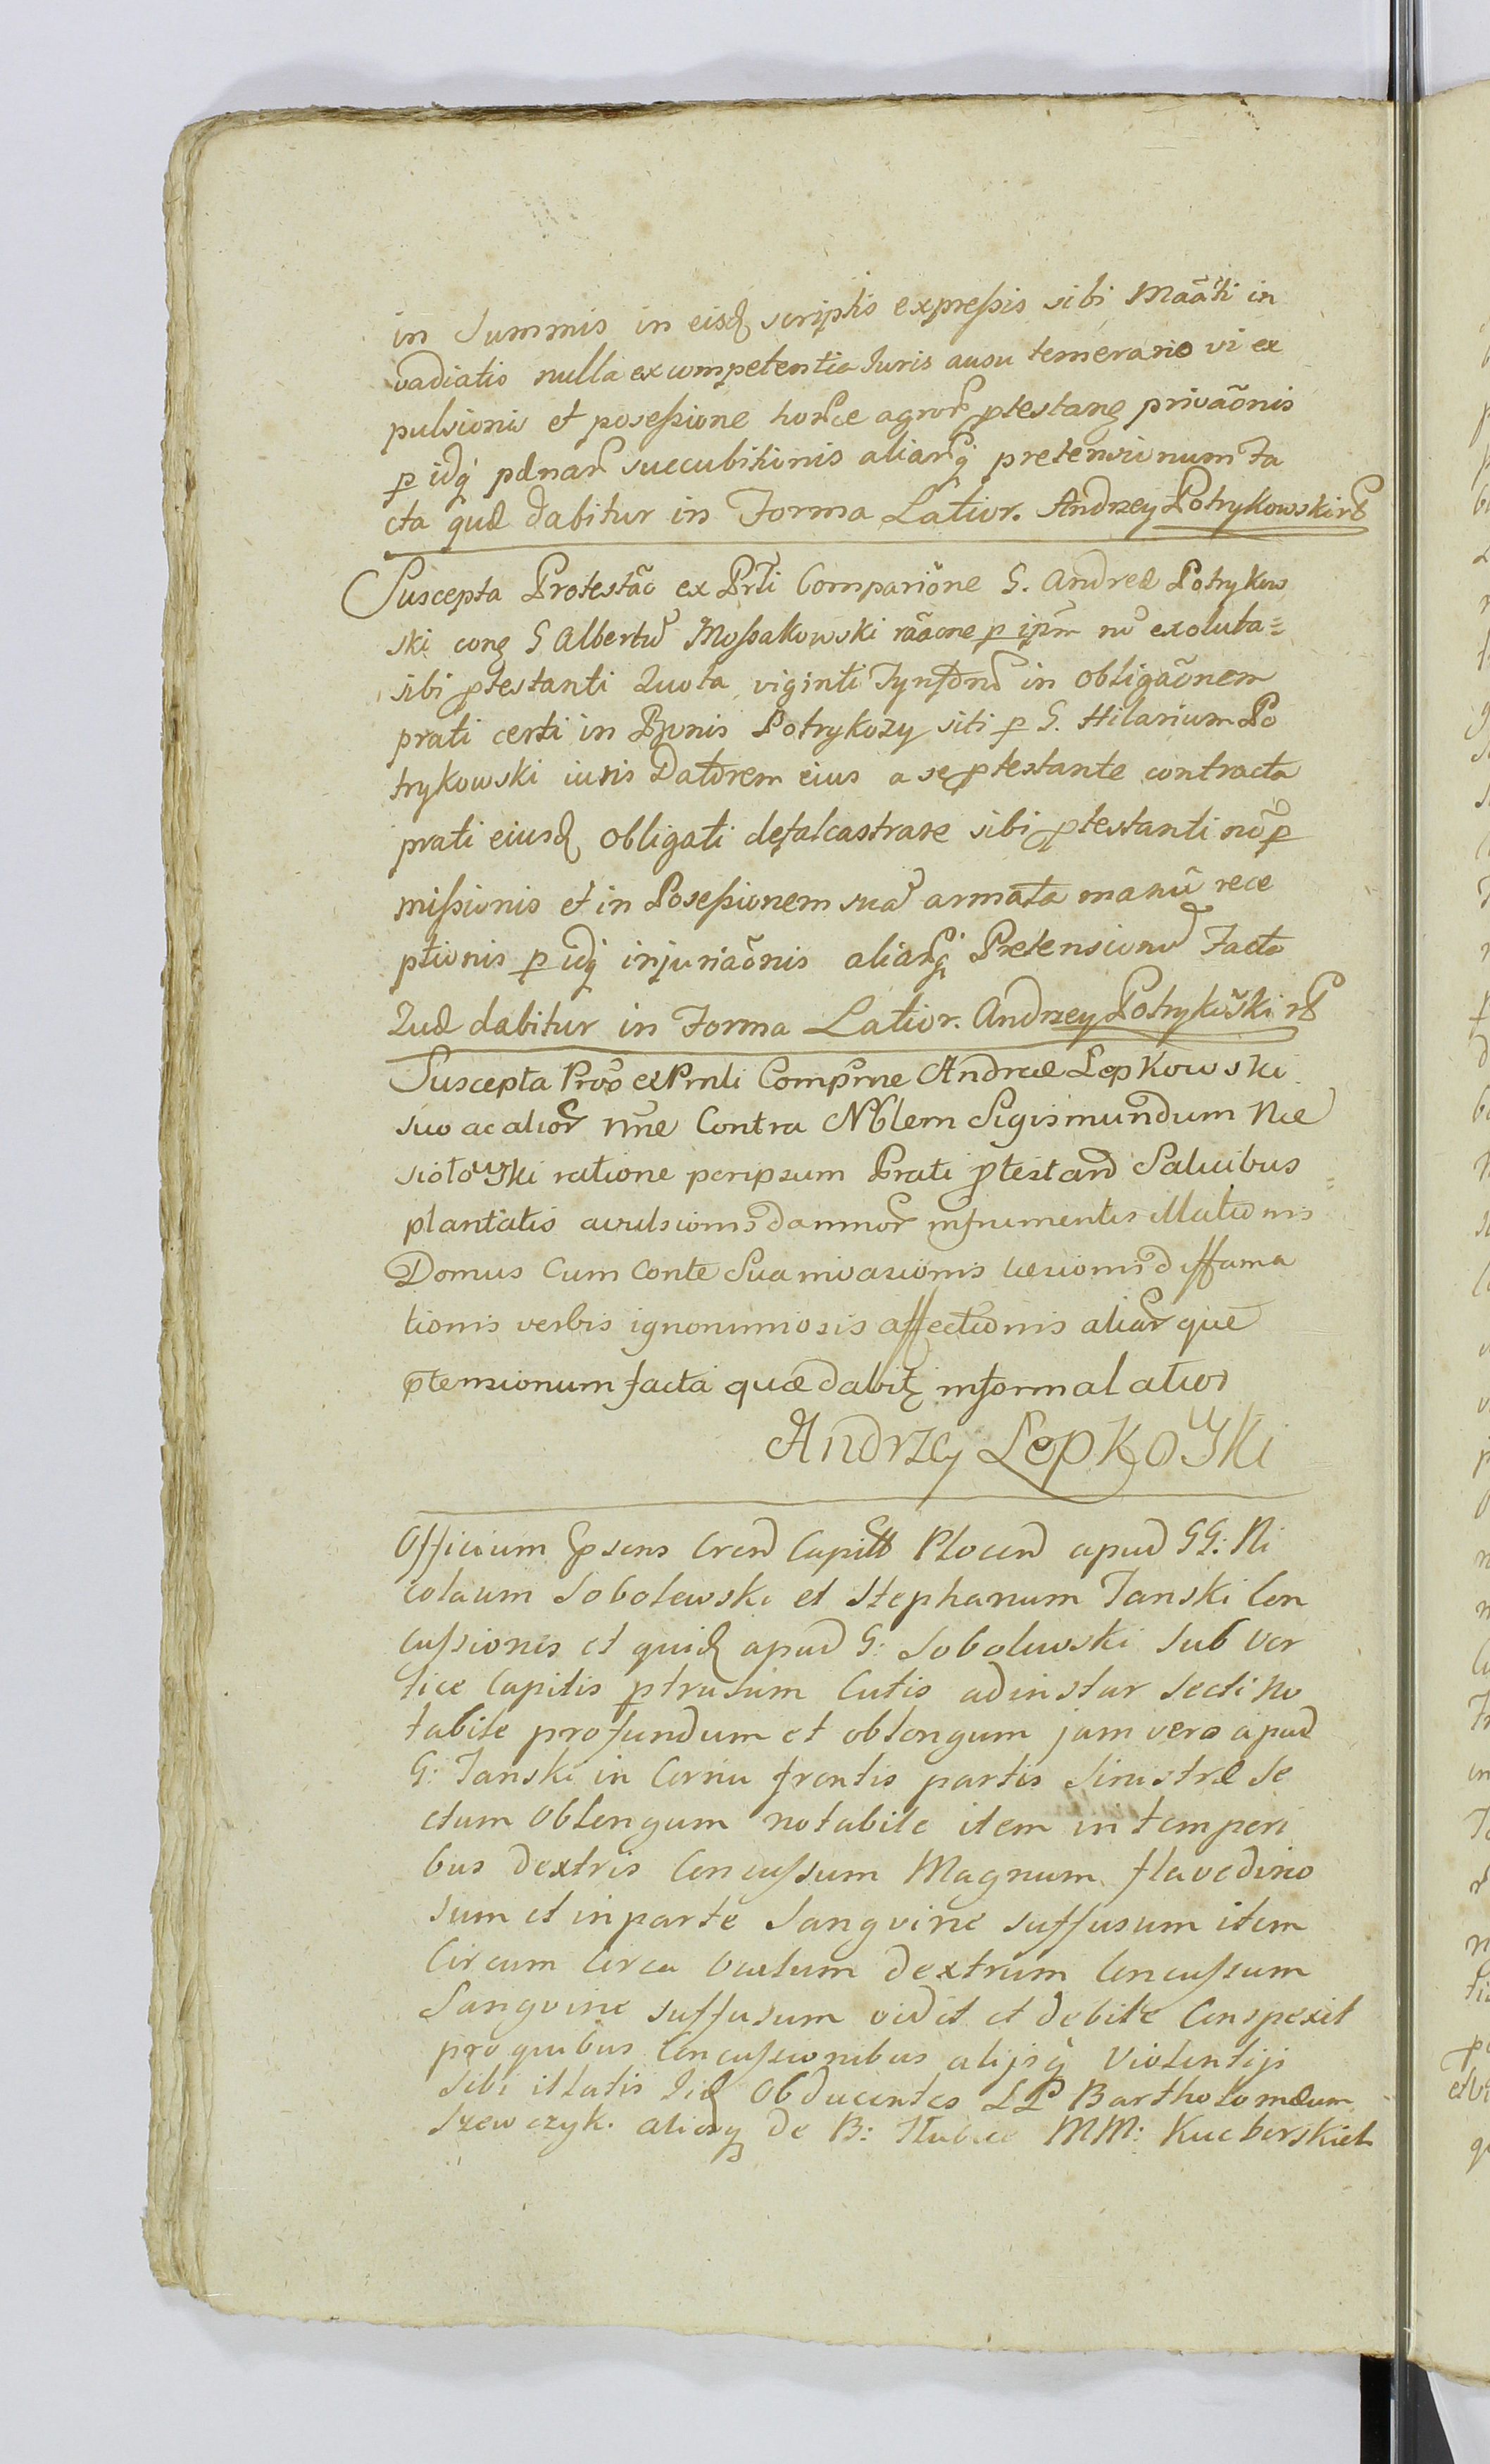 in Summis in eisd scriptis expressis sibi Maãti in
vadiatio nulla ex competentia Iuris ausu temerario vi ex
pulsionis et posessione horce agror ptestang privaõnis
p idq pdnar succubitionis aliarq pretensionum fa
cta quæ dabitur in Forma Latior. Andrzey Potrykowski
Suscepta Protestãõ ex Prti Comparióne G. Andreæ Potrykow
ski cong G Albertũ Mossakowski rãõne p ipm nõ exoluta=
sibi ptestanti Quota viginti Tynfonũ in obligaõnem
prati certi in Bonis Potrykozy siti p G. Hilarium Po
trykowski iuris Datorem eius a se ptestante contracta
prati eiusd obligati defalcastrare sibi ptestanti nõ p
missionis et in Posessionem suã armata manũ rece
ptionis p idq injuriaõnis aliarq Pretensionũ Facta
Quæ dabitur in Forma Latior. Andrzey Potrykowski
Suscepta Prõ ex Prnti Comprne Andreæ Lepkowski
suo ac alior nne Contra Nblem Sigismundum Nie
siołowski ratione per ipsum Prati ptestand Salicibus
plantatis avulsionis damnor in frumentis illationis
Domus Cum Conte Sua invasionis læsionis diffama
tionis verbis ignominiosis affectionis aliar que
ptensionum facta quæ dabit in forma latior
Andrzey Lepkowski
Officium psens Crend Capitt Plocen apud GG: Ni
colaum Sobolewski et Stephanum Janski Con
cussionis et quid apud G: Sobolewski sub ver
tice Capitis ptrusum Cutis ad instar secti no
tabile profundum et oblongum jam vero apud
G: Janski in Cornu frontis partis Sinistræ se
ctum Oblongum notabile item in tempori
bus dextris Concussum Magnum flavedino
sum et in parte Sangvine suffusum item
Circum Circa oculum dextrum Concussum
Sangvine suffusum vidit et debite Conspexit
pro quibus Concussionibus alijsq Violentijs
sibi illatis Iid Obducentes LL Bartholomæum
Szewczyk. aliosq de B: MM: Kucborskich